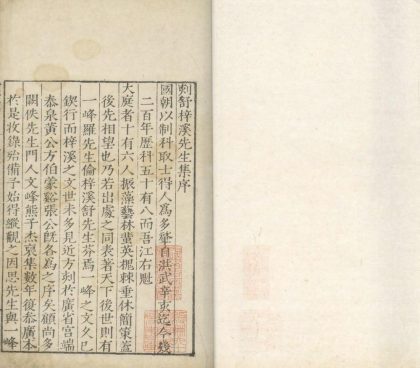 刻舒梓溪先生集序
國朝以制科取士得人為多肇自洪武辛亥迄今幾
二百年歷科五十有八而吾江右魁
大庭者十有六人振藻藝林蜚英槐棘垂休簡策蓋
後先相望也乃若出處之同表著天下後世則有
一峰羅先生倫梓溪舒先生芬焉一峰之文久已
鋟行而梓溪之文世未多見近方刻於廣省宮端
泰泉黃公方伯蒙谿張公既各為之序矣顧尚多
闕佚先生門人文峰熊子杰裒集數年復泰廣本
於是收錄始備予始得縱觀之因思先生與一峰